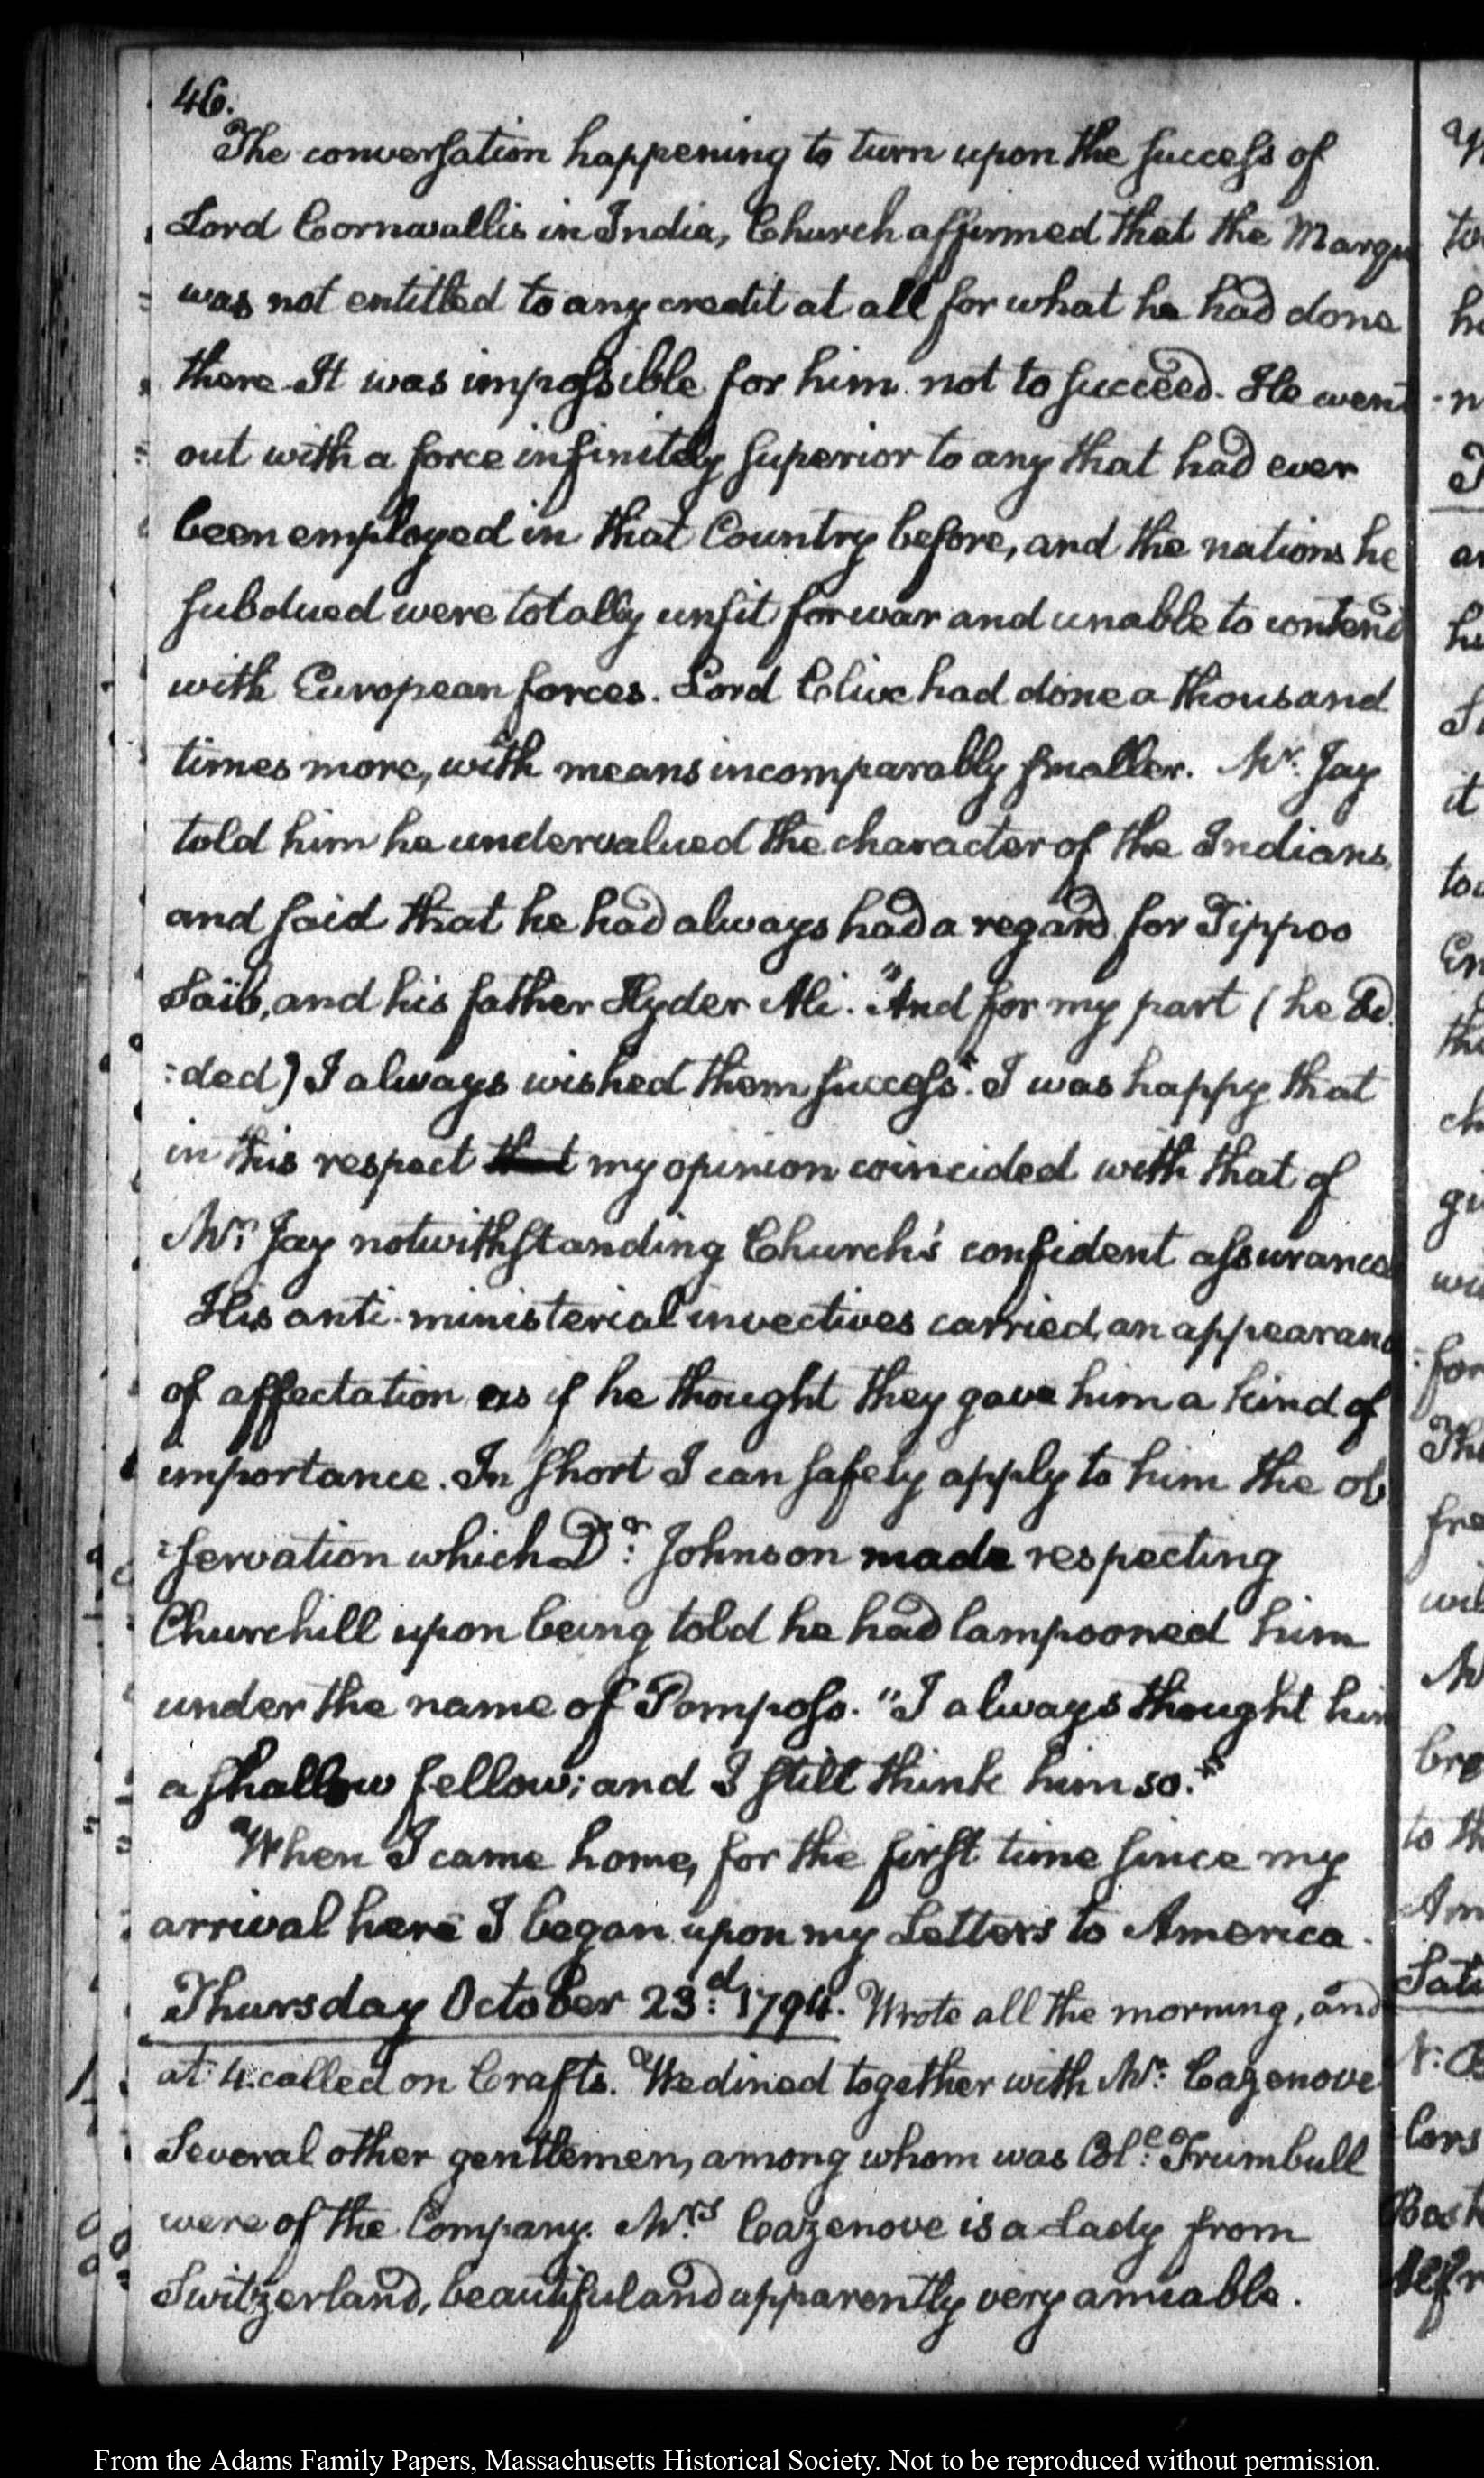 46.
The conversation happening to turn upon the success of
Lord Cornwallis in India, Church affirmed that the Marqu
was not entitled to any credit at all for what he had done
there It was impossible for him not to succeed. He went
out with a force infinitely superior to any that had ever
been employed in that Country before, and the nations he
subdued were totally unfit for war and unable to contend
with European forces. Lord Clive had done a thousand
times more, with means incomparably smaller. Mr. Jay
told him he undervalued the character of the Indians,
and said that he had always had a regard for Tippoo
Saïb, and his father Hyder Ali. "And for my part (he ad
:ded) I always wished them success". I was happy that
in this respect that my opinion coincided with that of
Mr. Jay notwithstanding Church's confident assurance
His anti-ministerial invectives carried an appearanc
of affectation as if he thought they gave him a kind of
importance. In short I can safely apply to him the ob
:servation which Dr: Johnson made respecting
Churchill upon being told he had lampooned him
under the name of Pomposo. "I always thought him
a shallow fellow; and I still think him so."
When I came home, for the first time since my
arrival here I began upon my Letters to America.
Thursday October 23:d 1794. Wrote all the morning, and
at 4. called on Crafts. We dined together with Mr: Cazenove
Several other gentlemen, among whom was Coleo: Trumbull
were of the Company. Mrs. Cazenove is a Lady from
Switzerland, beautiful and apparently very amiable.
From the Adams Family Papers, Massachusetts Historical Society. Not to be reproduced without permission.